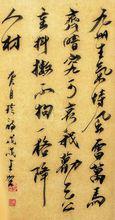 九州生氣恃風雷萬馬
齊喑究可哀我勸天公
重抖擻不拘一格降
人材